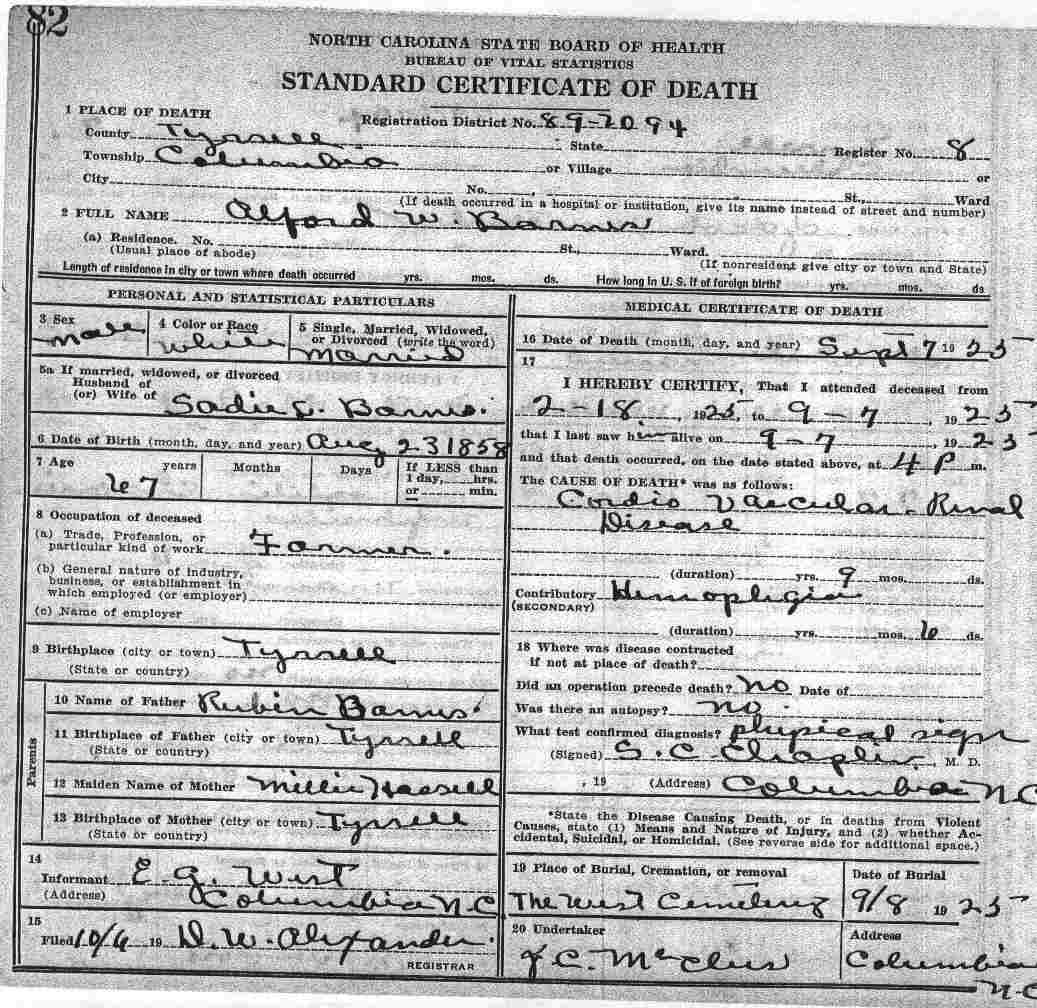 82
NORTH CAROLINA STATE BOARD OF HEALTH
BUREAU OF VITAL STATISTICS
STANDARD CERTIFICATE OF DEATH
1 PLACE OF DEATH
Registration District No. 89-2094
County Tyrrell State Register No. 8
Township Columbia or Village or
City No. , St., Ward
(If death occurred in a hospital or institution, give its name instead of street and number)
2 FULL NAME Alford W. Barnes
(a) Residence. No. St., Ward.
(Usual place of abode) (If nonresident give city or town and State)
Length of residence in city or town where death occurred yrs. mos. ds. How long in U. S. if of foreign birth? yrs. mos. ds
PERSONAL AND STATISTICAL PARTICULARS
3 Sex
Male
4 Color or Race
White
5 Single, Married, Widowed,
or Divorced (write the word)
Married
5a If married, widowed, or divorced
Husband of
(or) Wife of Sadie L. Barnes.
6 Date of Birth (month, day, and year) Aug 23 1858
7 Age years Months Days If LESS than
1 day, hrs.
or min.
67
8 Occupation of deceased
(a) Trade, Profession, or
particular kind of work Farmer.
(b) General nature of industry,
business, or establishment in
which employed (or employer)
(c) Name of employer
9 Birthplace (city or town) Tyrrell
(State or country)
Parents
10 Name of Father Rubin Barnes
11 Birthplace of Father (city or town) Tyrrell
(State or country)
12 Maiden Name of Mother Millie Hassell
13 Birthplace of Mother (city or town) Tyrrell
(State or country)
14
Informant E. G. West
(Address) Columbia N.C.
15
Filed 10/6 19 D. W. Alexander.
REGISTRAR
MEDICAL CERTIFICATE OF DEATH
16 Date of Death (month, day, and year) Sept 7 1925
17
I HEREBY CERTIFY, That I attended deceased from
2-18, 1925, to 9-7, 1925
that I last saw him alive on 9-7, 1925
and that death occurred, on the date stated above, at 4 P m.
The CAUSE OF DEATH* was as follows:
Cardio Vascular-Renal
Disease
(duration) yrs. 9 mos. ds.
Contributory Hemiplegia
(SECONDARY)
(duration) yrs. mos. 6 ds.
18 Where was disease contracted
if not at place of death?
Did an operation precede death? no Date of
Was there an autopsy? no.
What test confirmed diagnosis? physical sign
(Signed) S. C. Chaplin, M. D.
, 19 (Address) Columbia N.C
*State the Disease Causing Death, or in deaths from Violent
Causes, state (1) Means and Nature of Injury, and (2) whether Ac-
cidental, Suicidal, or Homicidal. (See reverse side for additional space.)
19 Place of Burial, Cremation, or removal
The West Cemetery
Date of Burial
9/8 1925
20 Undertaker
J C.
Address
Columbia
N.C